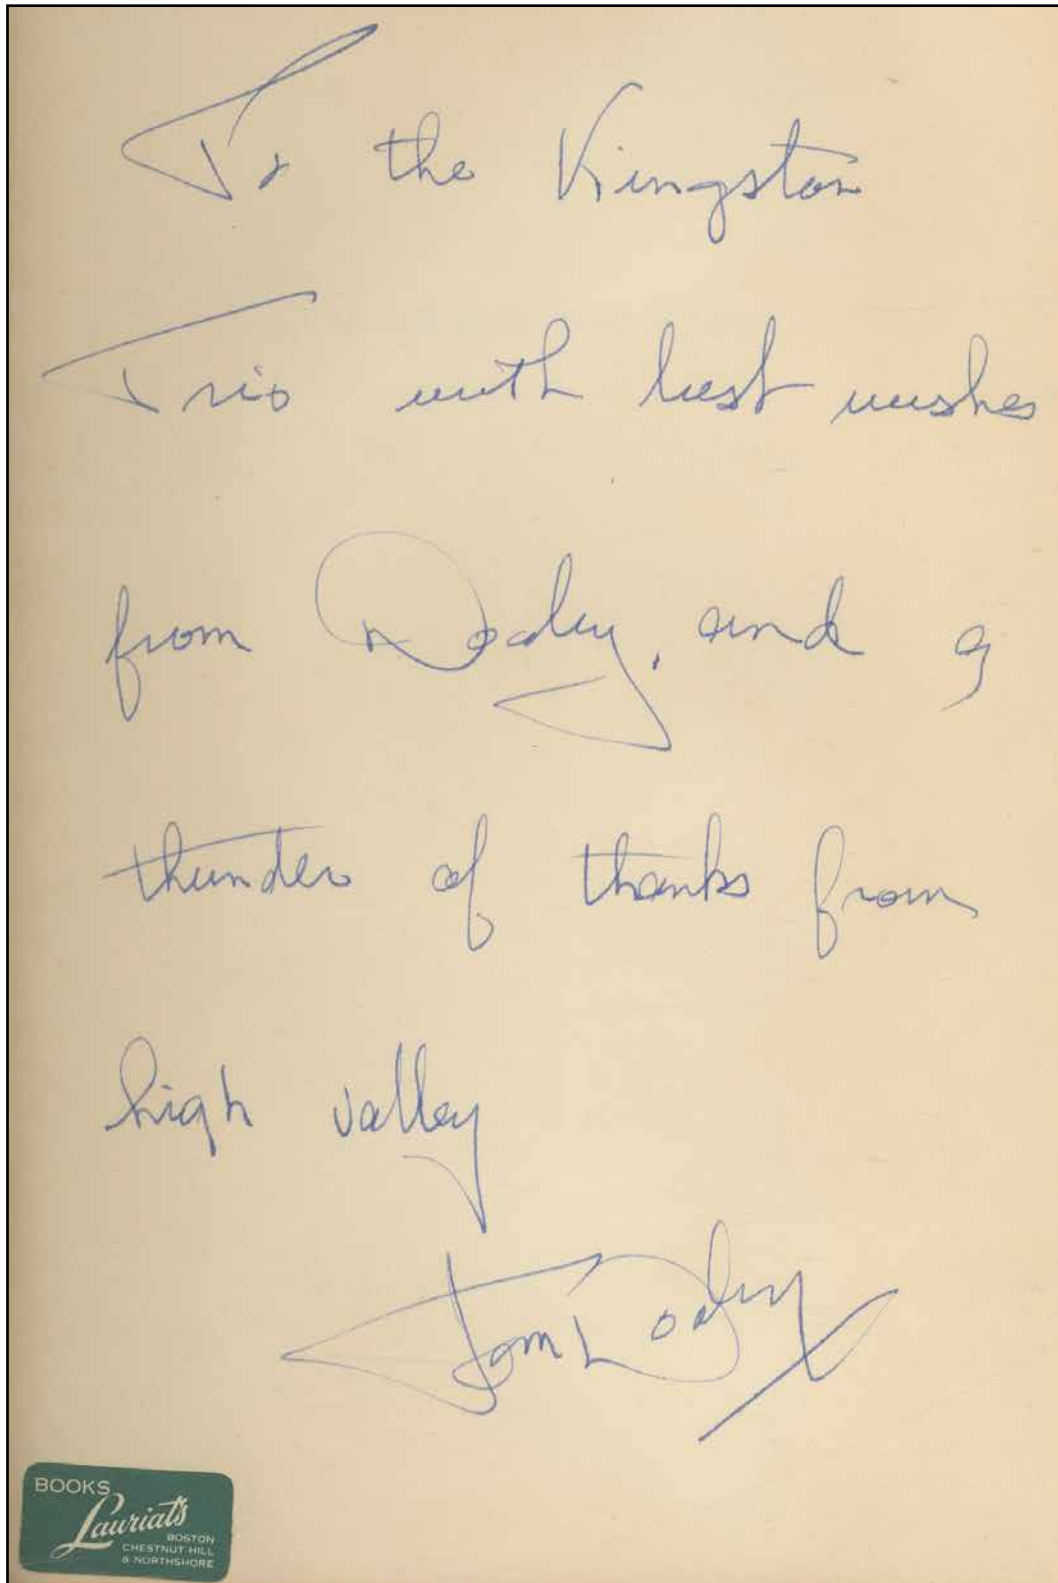 To the Kingston
Trio with best wishes
from Dooley, and a
thunder of thanks from
high valley
Tom Dooley
BOOKS
Lauriat's
BOSTON
CHESTNUT HILL
& NORTHSHORE